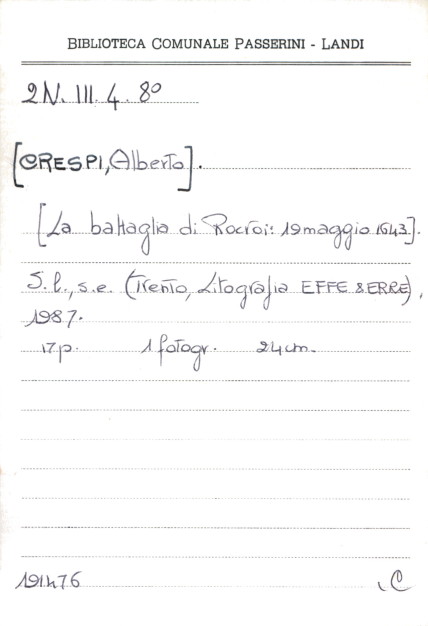 BIBLIOTECA COMUNALE PASSERINI - LANDI
2N. III. 4. 8º
[CRESPI, Alberto].
[La battaglia di Rocroi: 19 maggio 1643].
S.l., s.e. (Trento, Litografia EFFE & ERRE),
1987.
17p. 1 fotogr. 24cm.
191476